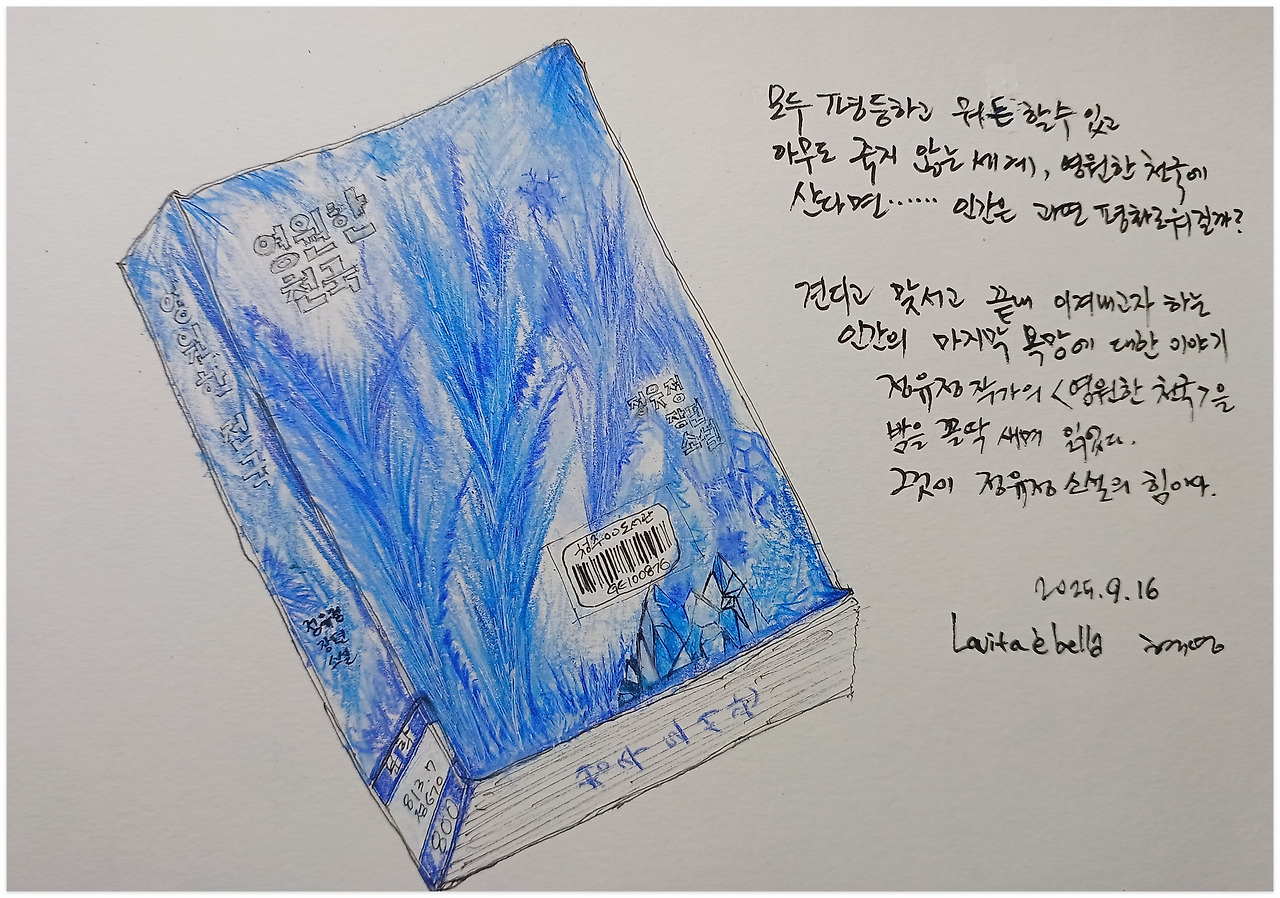 영원한
천국
정유정
장편
소설
영원한 천국
정유정
장편
소설
청주oo도서관
GE100876
813.7
정670
800
모두 평등하고 뭐든 할 수 있고
아무도 죽지 않는 세계, 영원한 천국에
산다면…… 인간은 과연 평화로워질까?
견디고 맞서고 끝내 이겨내고자 하는
인간의 마지막 욕망에 대한 이야기
정유정 작가의 <영원한 천국>을
밤을 꼴딱 새며 읽었다.
그것이 정유정 소설의 힘이다.
2025.9.16
La vita è bella